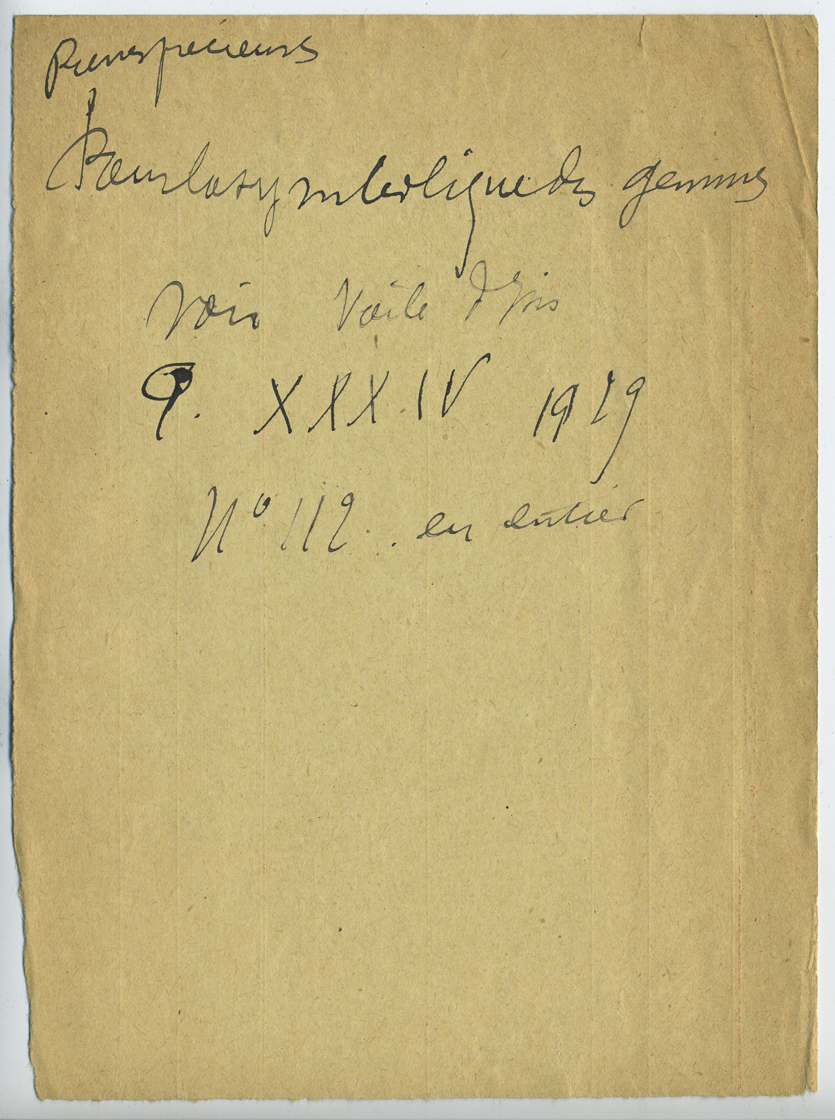 Pierres précieuses
Pour la symbolique des gemmes
voir Voile d'Isis
P. XXXIV 1929
N° 112. en entier